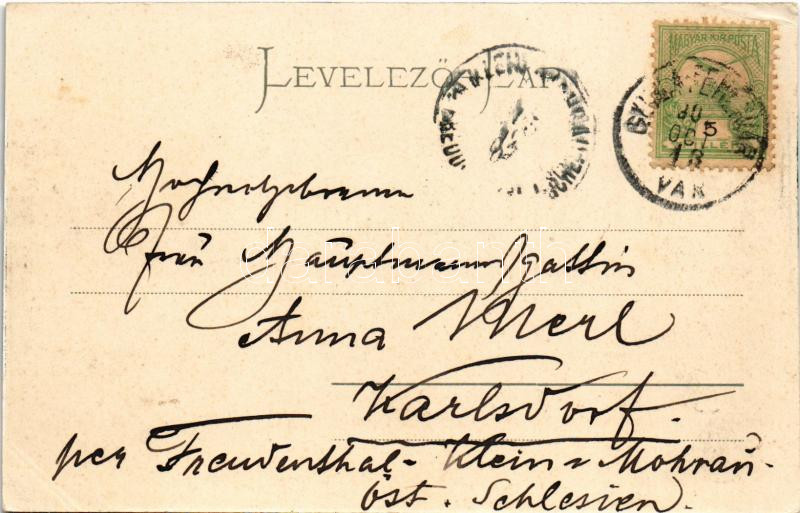 LEVELEZŐ LAP
MAGYAR KIR. POSTA
5
GYULAFEHÉRVÁR
OCT
13
VÁR
Hochwohlgeboren
Frau Hauptmannsgattin
Anna Merl
Karlsdorf.
per Freudenthal - Klein = Mohrau -
öst. Schlesien.
darabanth